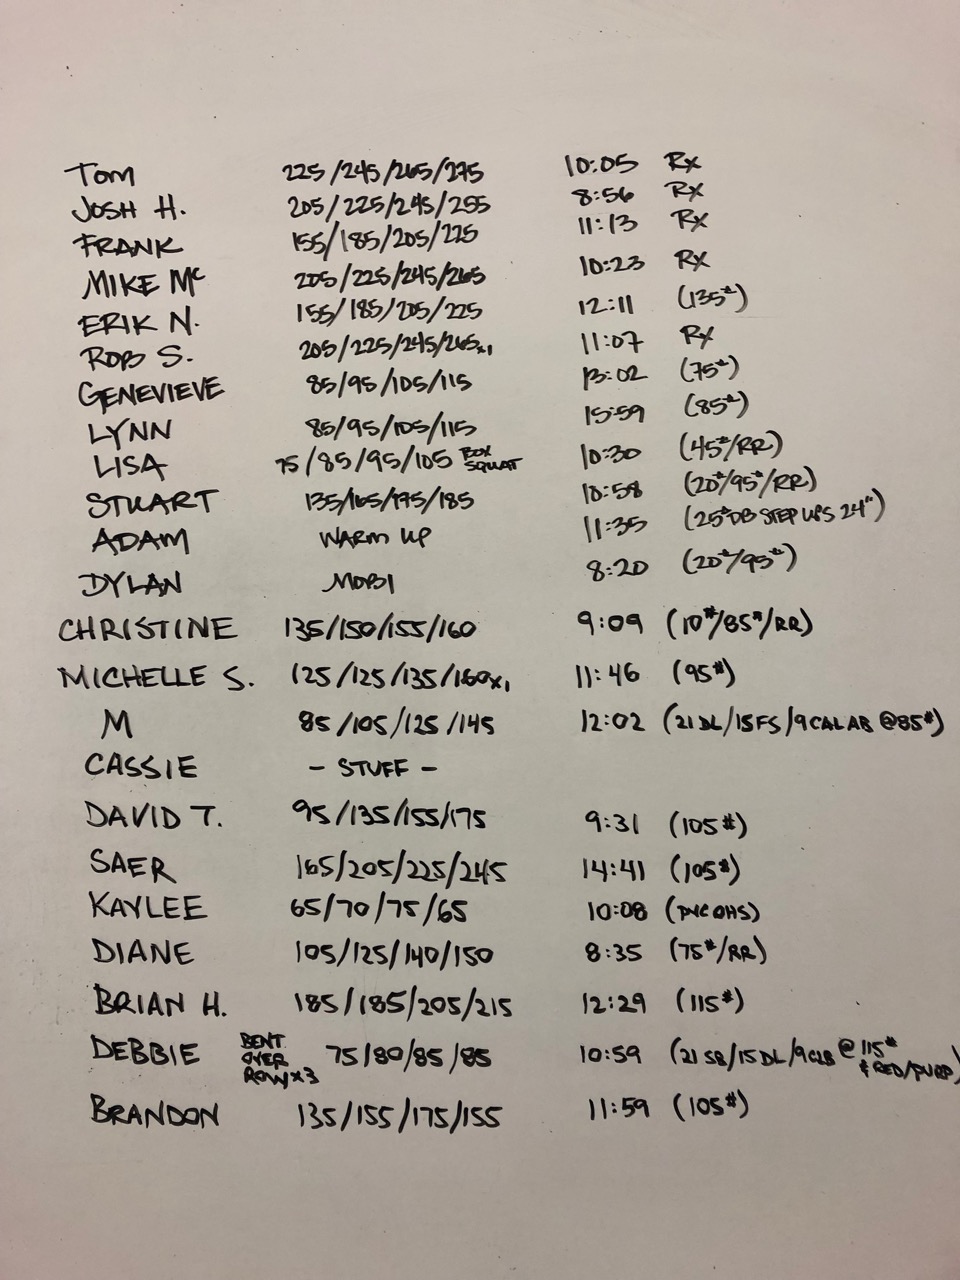 Tom 225/245/265/275 10:05 Rx
JOSH H. 205/225/245/255 8:56 Rx
FRANK 155/185/205/225 11:13 Rx
MIKE Mc 205/225/245/265 10:23 Rx
ERIK N. 155/185/205/225 12:11 (135#)
ROB S. 205/225/245/265x1 11:07 Rx
GENEVIEVE 85/95/105/115 13:02 (75#)
LYNN 85/95/105/115 15:59 (85#)
LISA 75/85/95/105 BOX SQUAT 10:30 (45#/RR)
STUART 135/165/175/185 10:58 (20#/95#/RR)
ADAM WARM UP 11:35 (25#DB STEP UPS 24")
DYLAN MOBI 8:20 (20#/95#)
CHRISTINE 135/150/155/160 9:09 (10#/85#/RR)
MICHELLE S. 125/125/135/160x1 11:46 (95#)
M 85/105/125/145 12:02 (21 DL/15 FS/9 CAL AB @85#)
CASSIE - STUFF -
DAVID T. 95/135/155/175 9:31 (105#)
SAER 165/205/225/245 14:41 (105#)
KAYLEE 65/70/75/65 10:08 (PVC OHS)
DIANE 105/125/140/150 8:35 (75#/RR)
BRIAN H. 185/185/205/215 12:29 (115#)
DEBBIE BENT OVER ROW x3 75/80/85/85 10:59 (21 SB/15 DL/9 @ 115# & RED/PURP)
BRANDON 135/155/175/155 11:59 (105#)